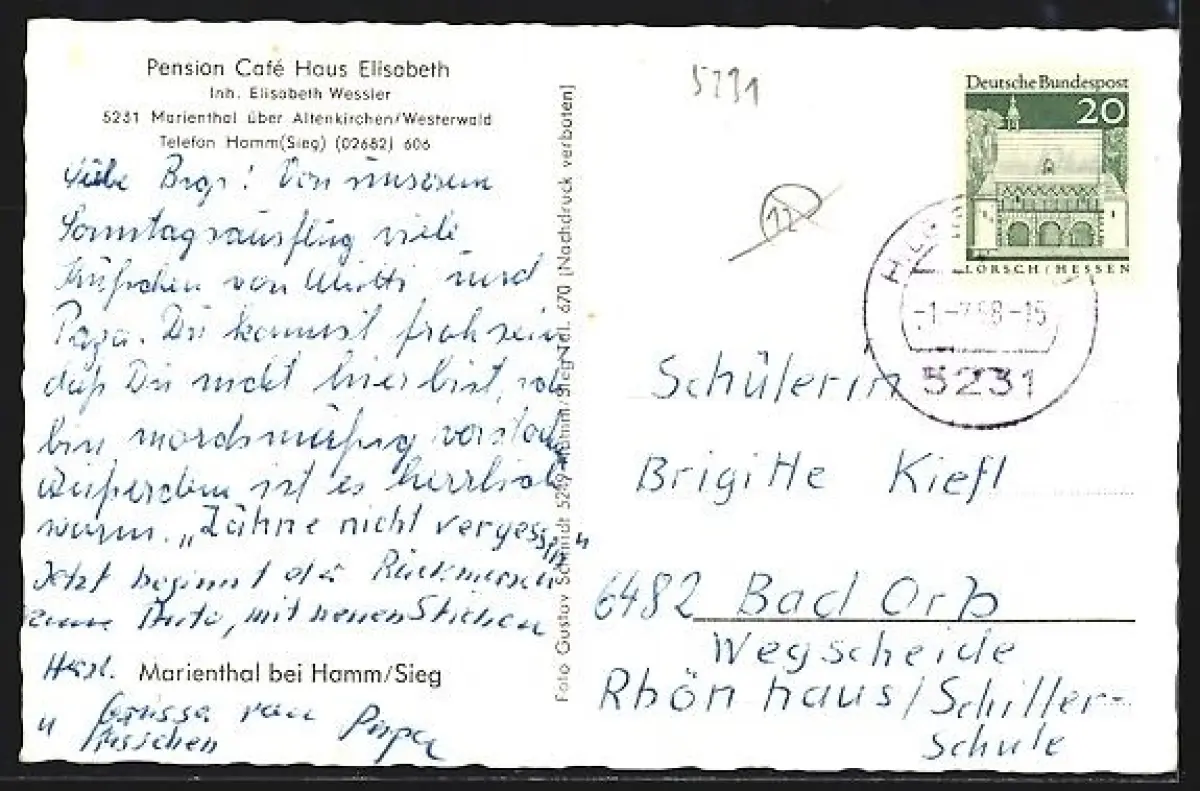 Pension Café Haus Elisabeth
Inh. Elisabeth Wessler
5231 Marienthal über Altenkirchen/Westerwald
Telefon Hamm(Sieg) (02682) 606
Liebe Von unserem
Sonntagsausflug viele
Küßchen von Mutti und
Papa. Du kannst froh sein
daß Du nicht hier bist,
bin mordsmäßig
Außerdem ist es herrlich
warm. „Zähne nicht vergessen"
Jetzt beginnt
Auto, mit
Herzl. Marienthal bei Hamm/Sieg
Grüsse von Papa
u
Foto Gustav Schmidt 5249 Hamm/Sieg Nr. 670 (Nachdruck verboten)
5231
12
Deutsche Bundespost
20
LORSCH/HESSEN
-1.-7.68-15
5231
Schülerin
Brigitte Kiefl
6482 Bad Orb
Wegscheide
Rhönhaus/Schiller-
schule